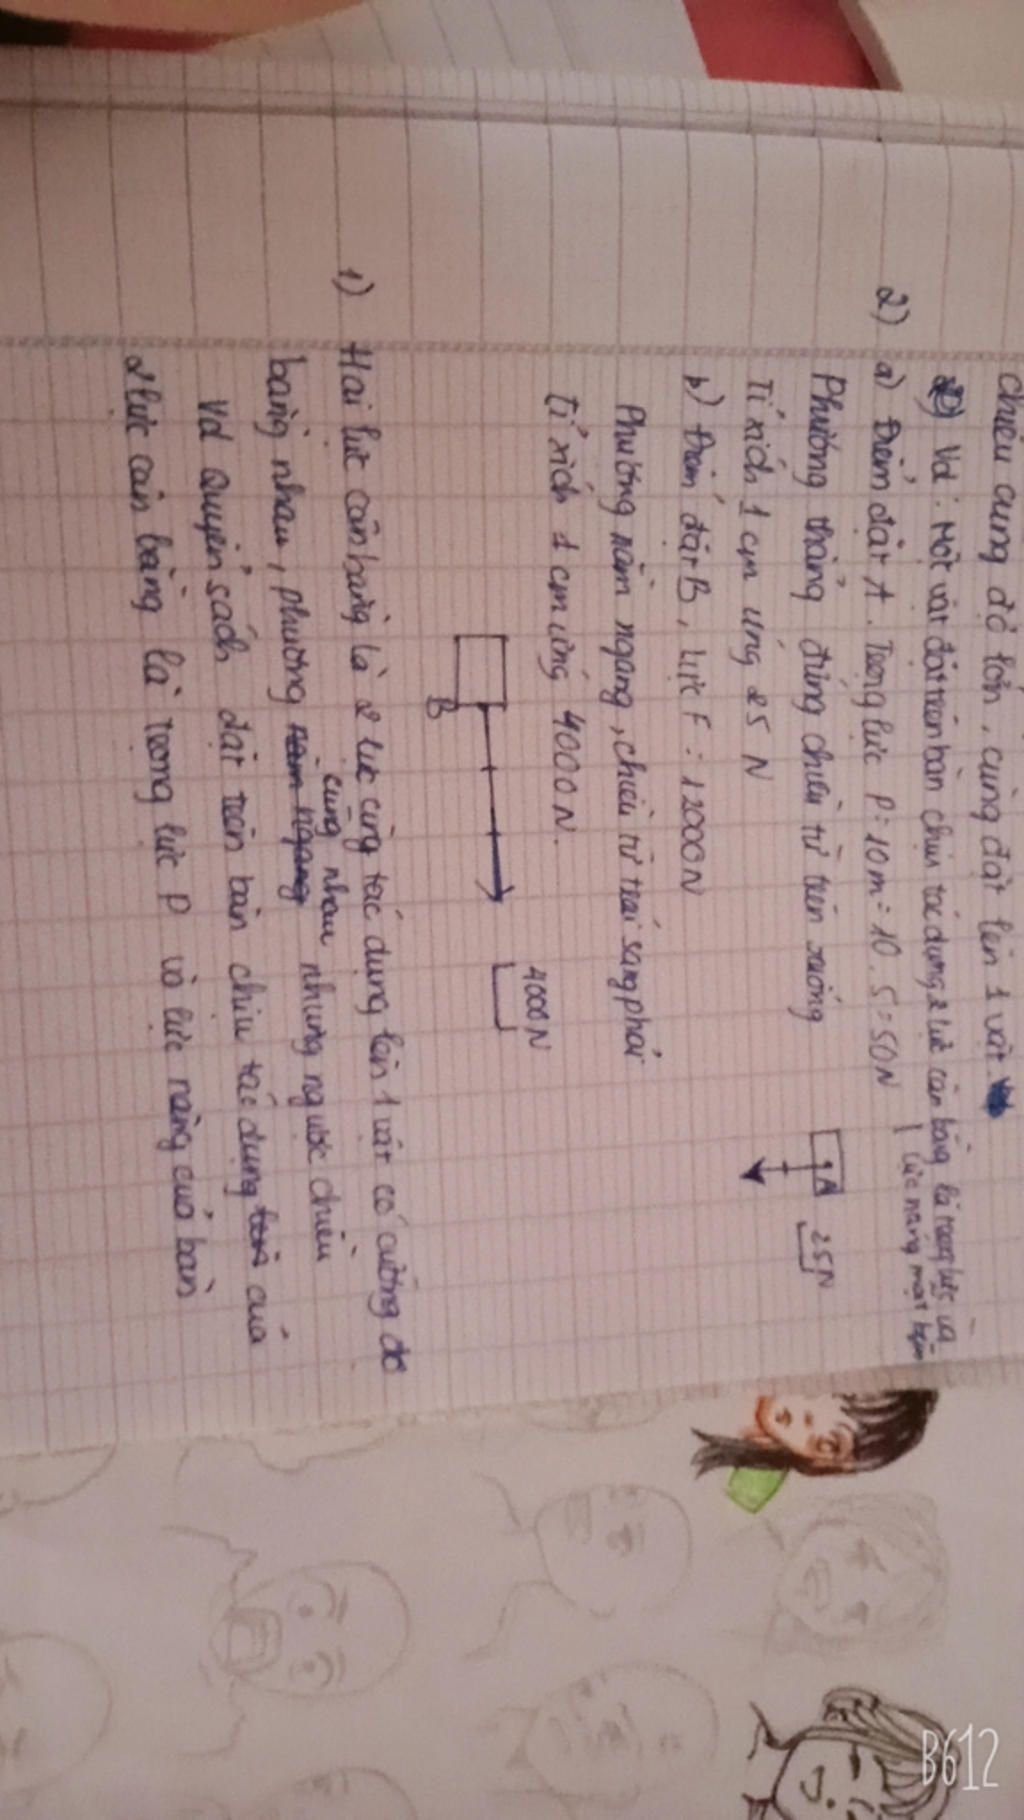 chiều cùng độ lớn, cùng đặt lên 1 vật.
Vd: Một vật đặt trên bàn chịu tác dụng 2 lực cân bằng là trọng lực và
lực nâng mặt bàn
2) a) Điểm đặt A. Trọng lực P = 10m = 10.5 = 50N
Phương thẳng đứng chiều từ trên xuống
Tỉ xích 1 cm ứng 25 N
A
25N
b) Điểm đặt B, lực F = 12000N
Phương nằm ngang, chiều từ trái sang phải
tỉ xích 1 cm ứng 4000 N.
4000N
B
1) Hai lực cân bằng là 2 lực cùng tác dụng lên 1 vật có cường độ
bằng nhau, phương nằm ngang cùng nhau nhưng ngược chiều
Vd quyển sách đặt trên bàn chịu tác dụng của
2 lực cân bằng là trọng lực P và lực nâng của bàn
B612